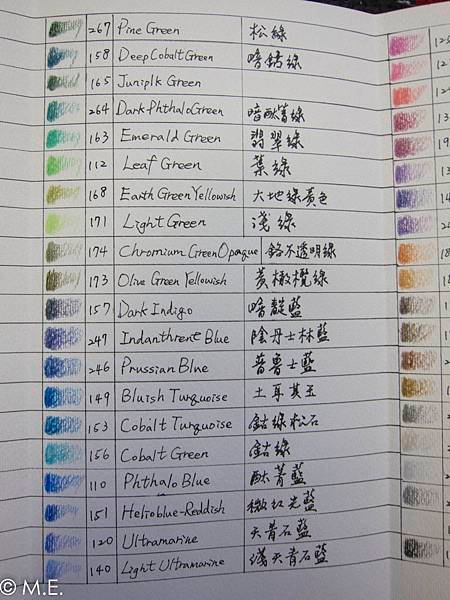 267 Pine Green 松綠
158 Deep Cobalt Green 暗鈷綠
165 Juniplk Green
264 Dark Phthalo Green 暗酞菁綠
163 Emerald Green 翡翠綠
112 Leaf Green 葉綠
168 Earth Green Yellowish 大地綠黃色
171 Light Green 淺綠
174 Chromium Green Opaque 鉻不透明綠
173 Olive Green Yellowish 黃橄欖綠
157 Dark Indigo 暗靛藍
247 Indanthrene Blue 陰丹士林藍
246 Prussian Blue 普魯士藍
149 Bluish Turquoise 土耳其玉
153 Cobalt Turquoise 鈷綠松石
156 Cobalt Green 鈷綠
110 Phthalo Blue 酞菁藍
151 Helioblue-Reddish 微紅光藍
120 Ultramarine 天青石藍
140 Light Ultramarine 淺天青石藍
© M.E.